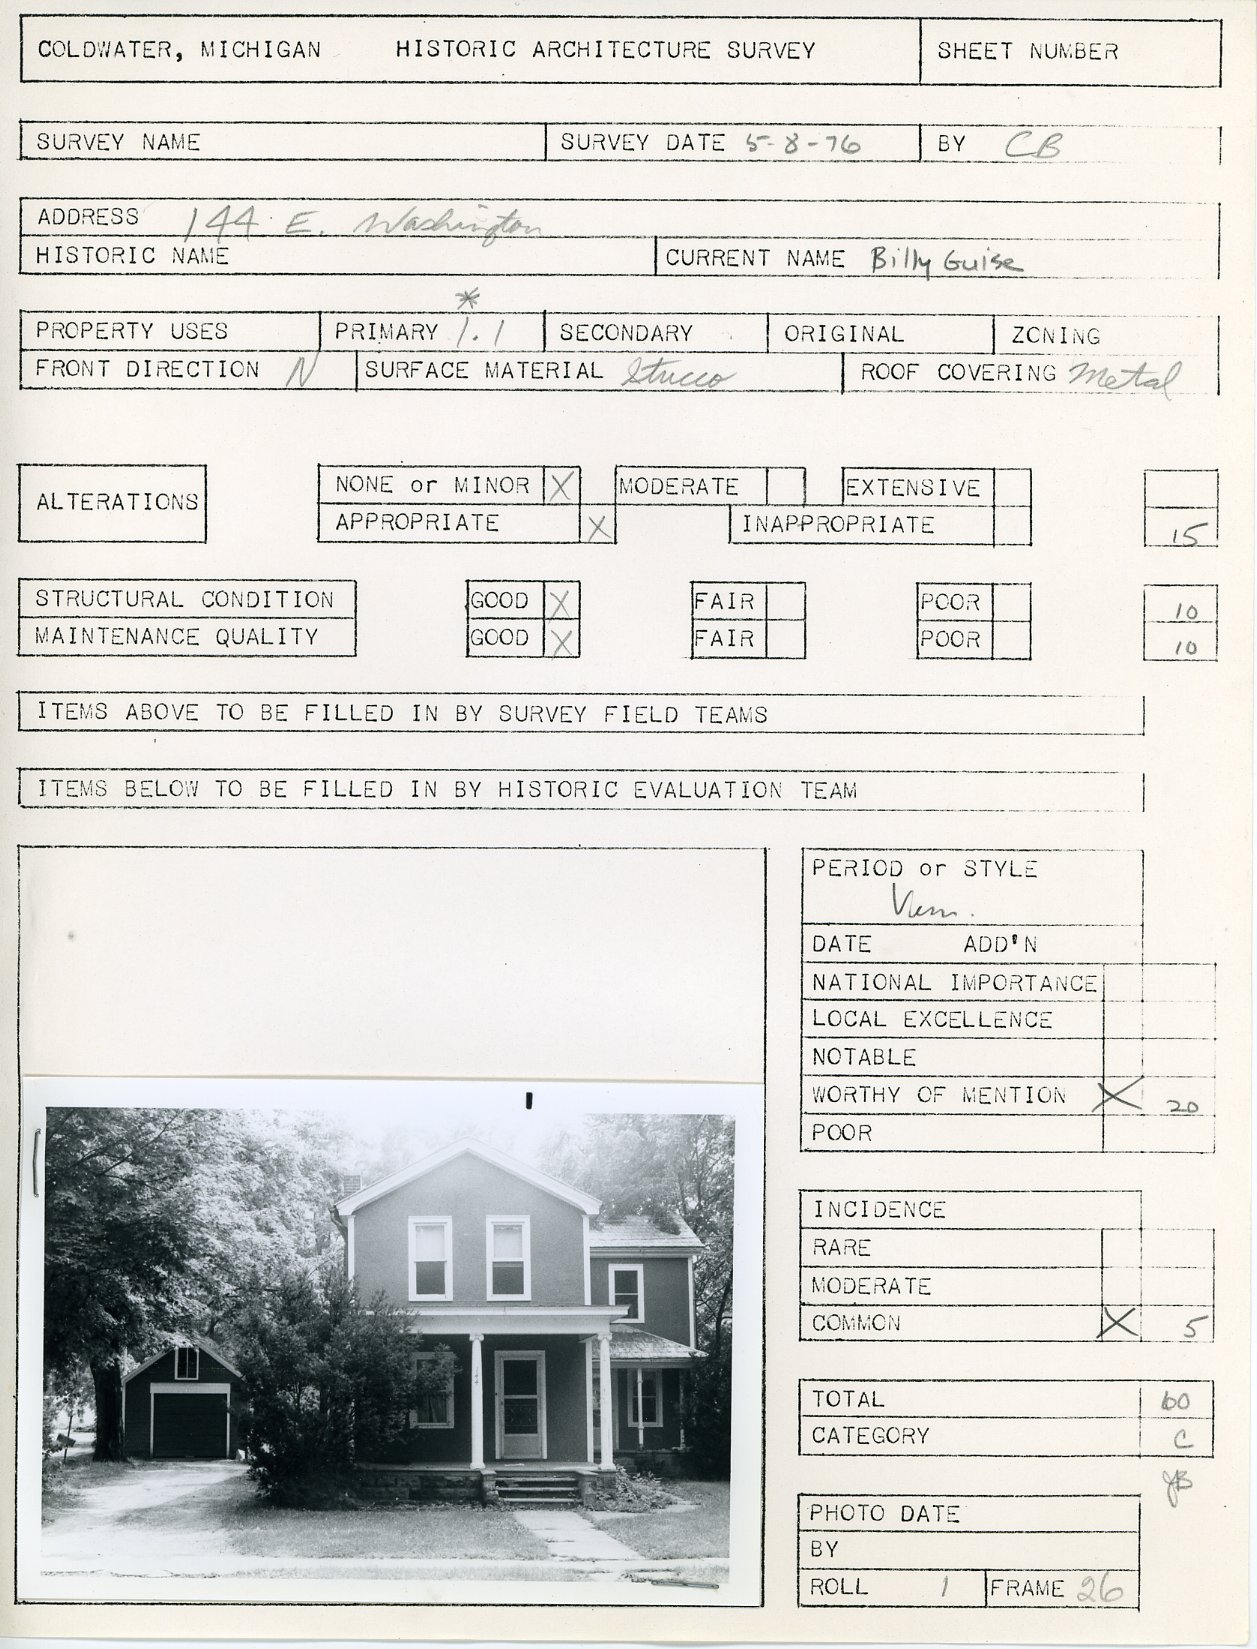 COLDWATER, MICHIGAN HISTORIC ARCHITECTURE SURVEY SHEET NUMBER
SURVEY NAME SURVEY DATE 5-8-76 BY CB
ADDRESS 144 E. Washington
HISTORIC NAME CURRENT NAME Billy Guise
*
PROPERTY USES PRIMARY 1.1 SECONDARY ORIGINAL ZONING
FRONT DIRECTION N SURFACE MATERIAL Stucco ROOF COVERING Metal
ALTERATIONS NONE or MINOR X MODERATE EXTENSIVE
APPROPRIATE X INAPPROPRIATE 15
STRUCTURAL CONDITION GOOD X FAIR POOR 10
MAINTENANCE QUALITY GOOD X FAIR POOR 10
ITEMS ABOVE TO BE FILLED IN BY SURVEY FIELD TEAMS
ITEMS BELOW TO BE FILLED IN BY HISTORIC EVALUATION TEAM
PERIOD or STYLE
Vern.
DATE ADD'N
NATIONAL IMPORTANCE
LOCAL EXCELLENCE
NOTABLE
WORTHY OF MENTION X 20
POOR
INCIDENCE
RARE
MODERATE
COMMON X 5
TOTAL 60
CATEGORY C
JB
PHOTO DATE
BY
ROLL 1 FRAME 26
144